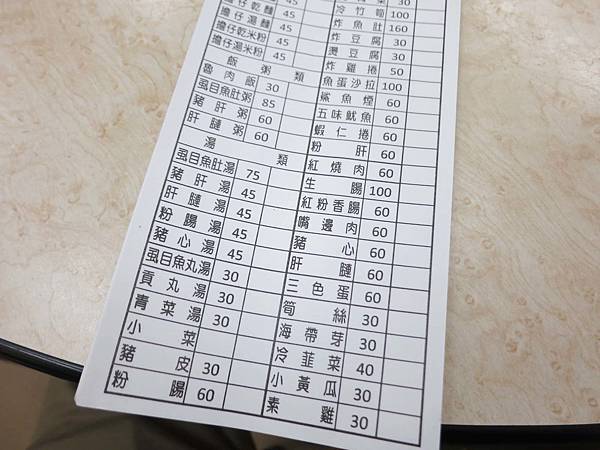 擔仔乾麵 45
擔仔湯麵 45
擔仔乾米粉 45
擔仔湯米粉 45
飯粥類
魯肉飯 30
虱目魚肚粥 85
豬肝粥 60
肝腱粥 60
湯類
虱目魚肚湯 75
豬肝湯 45
肝腱湯 45
粉腸湯 45
豬心湯 45
虱目魚丸湯 30
貢丸湯 30
青菜湯 30
小菜
豬皮 30
粉腸 60
30
冷竹筍 100
炸魚肚 160
炸豆腐 30
燙豆腐 30
炸雞捲 50
魚蛋沙拉 100
鯊魚煙 60
五味魷魚 60
蝦仁捲 60
粉肝 60
紅燒肉 60
生腸 100
紅粉香腸 60
嘴邊肉 60
豬心 60
肝腱 60
三色蛋 60
筍絲 30
海帶芽 30
冷韮菜 40
小黃瓜 30
素雞 30